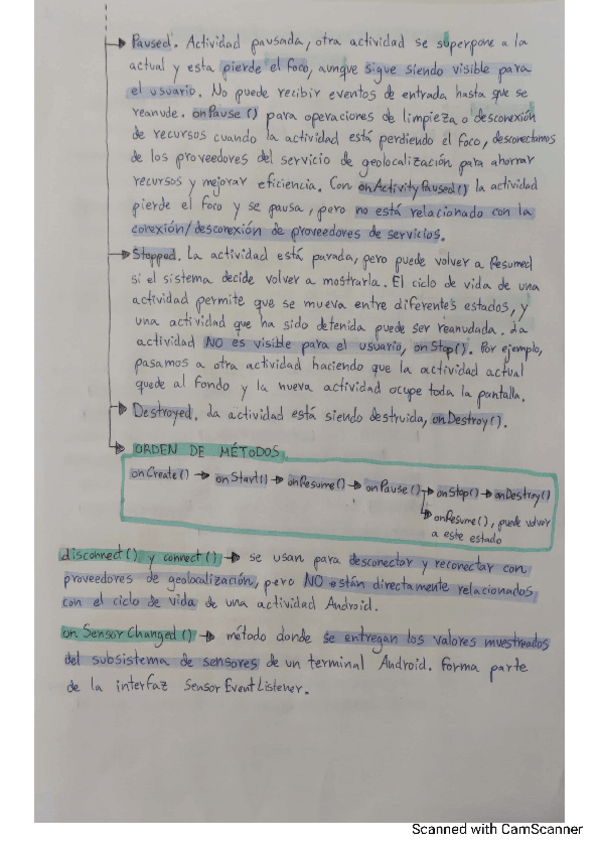 Paused. Actividad pausada, otra actividad se superpone a la
actual y esta pierde el foco, aunque sigue siendo visible para
el usuario. No puede recibir eventos de entrada hasta que se
reanude. onPause () para operaciones de limpieza o desconexión
de recursos cuando la actividad está perdiendo el foco, desconectamos
de los proveedores del servicio de geolocalización para ahorrar
recursos y mejorar eficiencia. Con onActivityPaused() la actividad
pierde el foco y se pausa, pero no está relacionado con la
conexión/desconexión de proveedores de servicios.
Stopped. La actividad está parada, pero puede volver a Resumed
si el sistema decide volver a mostrarla. El ciclo de vida de una
actividad permite que se mueva entre diferentes estados, y
una actividad que ha sido detenida puede ser reanudada. La
actividad NO es visible para el usuario, onStop(). Por ejemplo,
pasamos a otra actividad haciendo que la actividad actual
quede al fondo y la nueva actividad ocupe toda la pantalla.
Destroyed. La actividad está siendo destruida, onDestroy().
ORDEN DE MÉTODOS
onCreate() → onStart() → onResume() → onPause() → onStop() → onDestroy()
onResume(), puede volver
a este estado
disconnect() y connect() → se usan para desconectar y reconectar con
proveedores de geolocalización, pero NO están directamente relacionados
con el ciclo de vida de una actividad Android.
onSensorChanged() → método donde se entregan los valores muestreados
del subsistema de sensores de un terminal Android. Forma parte
de la interfaz SensorEventListener.
Scanned with CamScanner